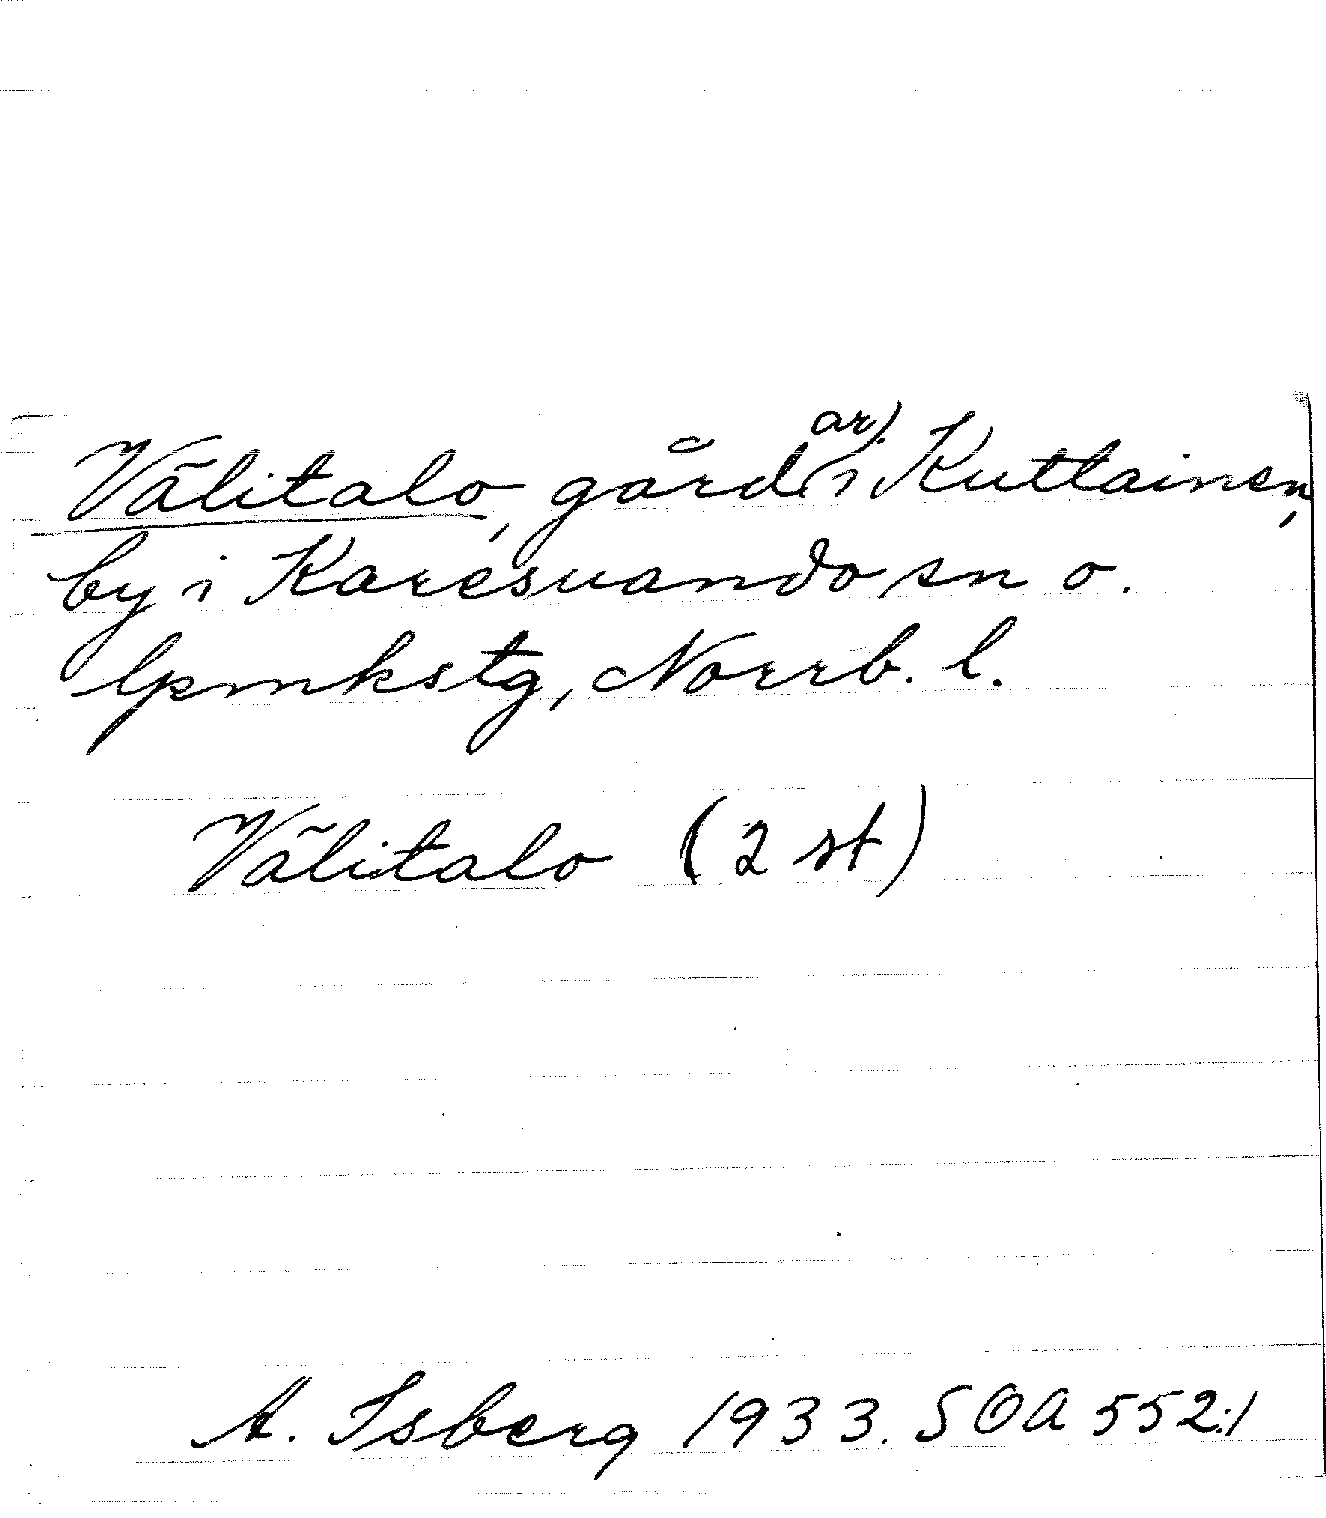 Välitalo, gård(ar) i Kuttainen,
by i Karesuando sn o.
lpmkstg, Norrb. l.
Välitalo (2 st)
A. Isberg 1933. SOA 552:1